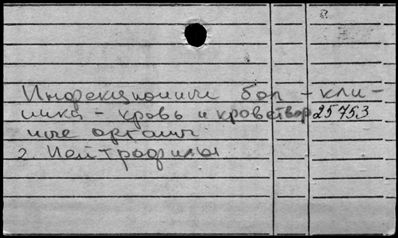 Инфекционные бол - кли-
ника - кровь и кроветвор 25753
ные органы
2. Нейтрофилы